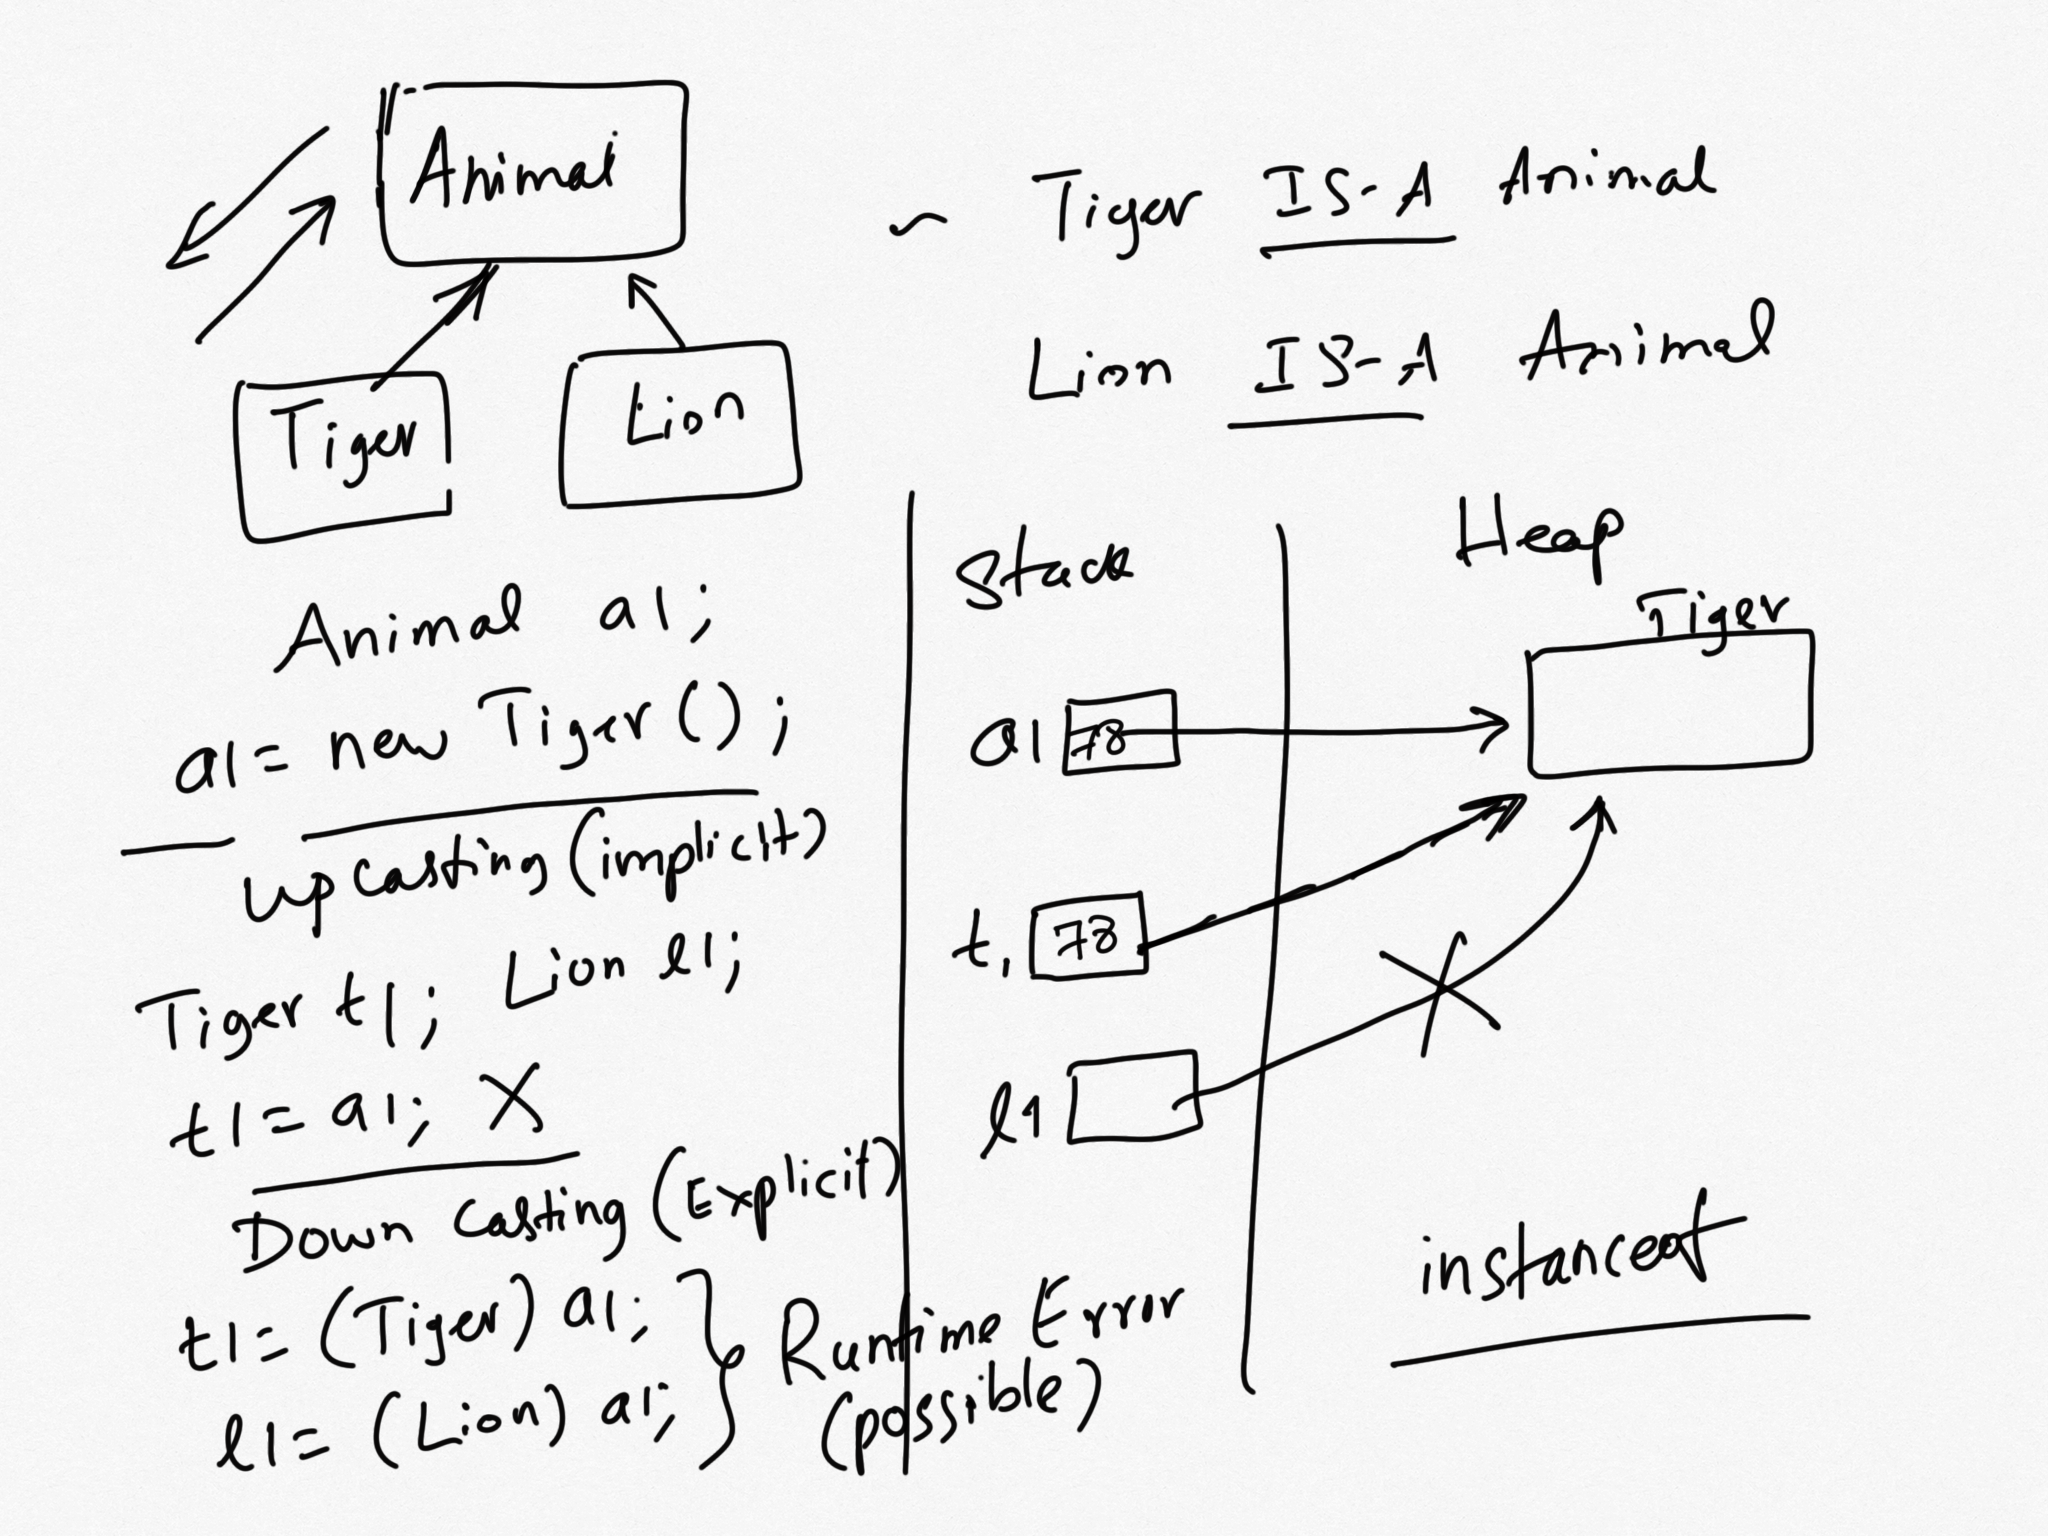 Animal
Tiger
Lion
Tiger IS-A Animal
Lion IS-A Animal
Animal a1;
a1= new Tiger();
up casting (implicit)
Tiger t1; Lion l1;
t1= a1; X
Down Casting (Explicit)
t1= (Tiger) a1;
l1= (Lion) a1;
Runtime Error
(possible)
Stack
a1 78
t1 78
l1
Heap
Tiger
instanceof